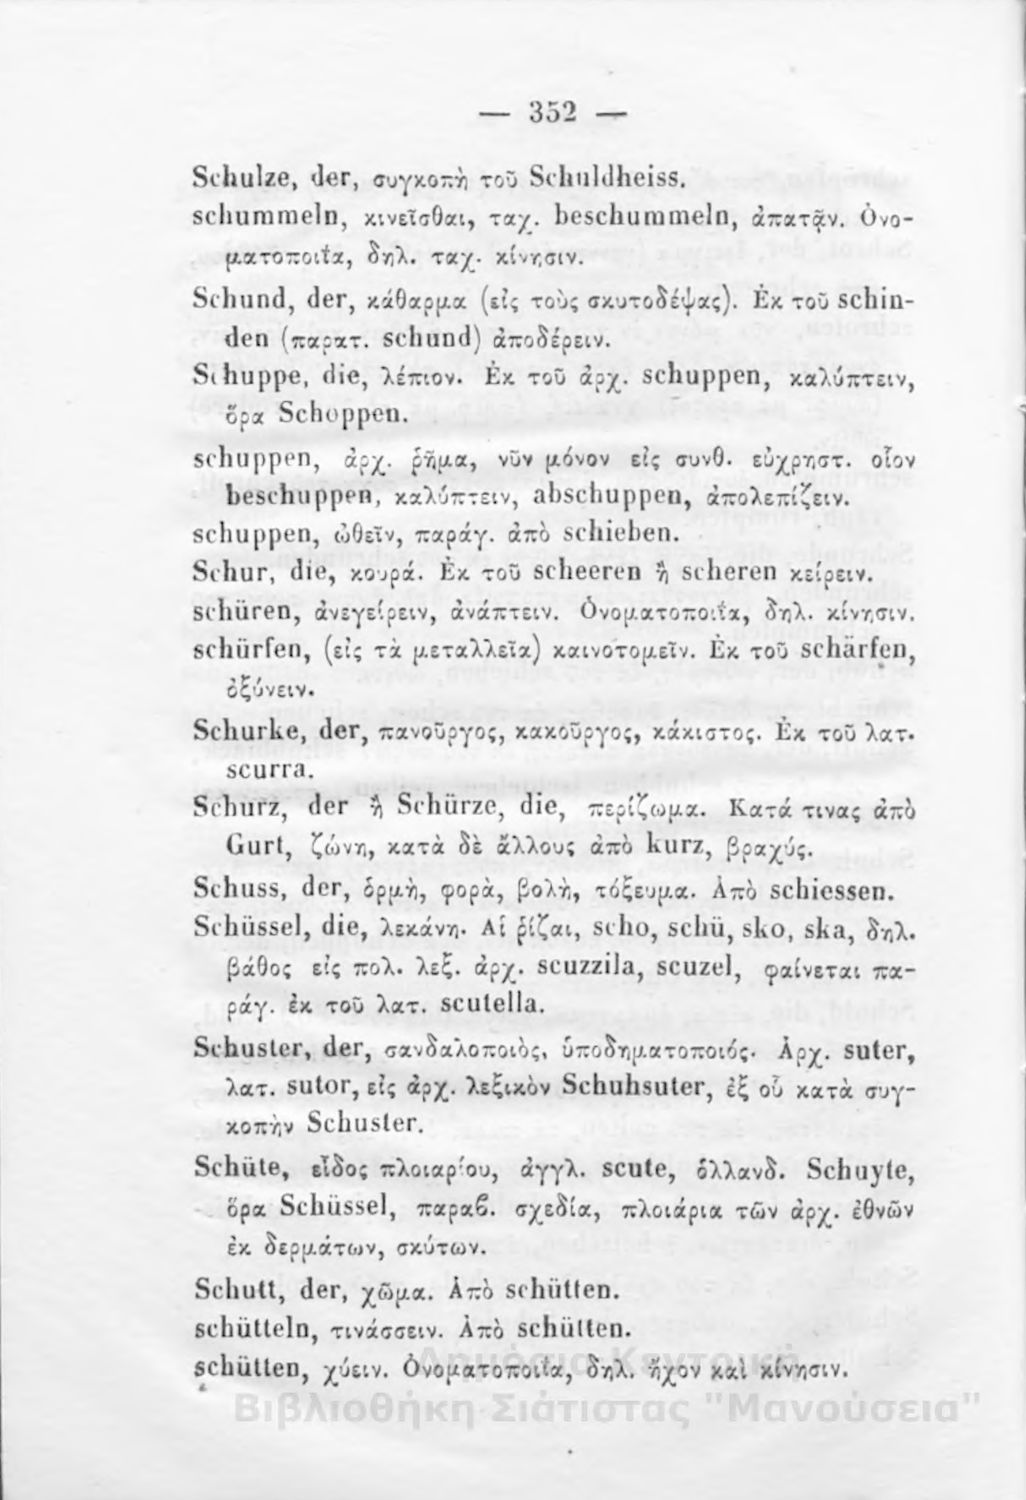 — 352 —
Schulze, der, συγκοπὴ τοῦ Schuldheiss.
schummeln, κινεῖσθαι, ταχ. beschummeln, ἀπατᾷν. Ὀνο-
ματοποιΐα, δηλ. ταχ. κίνησιν.
Schund, der, κάθαρμα (εἰς τοὺς σκυτοδέψας). Ἐκ τοῦ schin-
den (παρατ. schund) ἀποδέρειν.
Schuppe, die, λέπιον. Ἐκ τοῦ ἀρχ. schuppen, καλύπτειν,
ὅρα Schoppen.
schuppen, ἀρχ. ῥῆμα, νῦν μόνον εἰς συνθ. εὐχρηστ. οἷον
beschuppen, καλύπτειν, abschuppen, ἀπολεπίζειν.
schuppen, ὠθεῖν, παράγ. ἀπὸ schieben.
Schur, die, κουρά. Ἐκ τοῦ scheeren ἢ scheren κείρειν.
schüren, ἀνεγείρειν, ἀνάπτειν. Ὀνοματοποιΐα, δηλ. κίνησιν.
schürfen, (εἰς τὰ μεταλλεῖα) καινοτομεῖν. Ἐκ τοῦ schärfen,
ὀξύνειν.
Schurke, der, πανοῦργος, κακοῦργος, κάκιστος. Ἐκ τοῦ λατ.
scurra.
Schurz, der ἢ Schürze, die, περίζωμα. Κατά τινας ἀπὸ
Gurt, ζώνη, κατὰ δὲ ἄλλους ἀπὸ kurz, βραχύς.
Schuss, der, ὁρμὴ, φορὰ, βολὴ, τόξευμα. Ἀπὸ schiessen.
Schüssel, die, λεκάνη. Αἱ ῥίζαι, scho, schü, sko, ska, δηλ.
βάθος εἰς πολ. λεξ. ἀρχ. scuzzila, scuzel, φαίνεται πα-
ράγ. ἐκ τοῦ λατ. scutella.
Schuster, der, σανδαλοποιὸς, ὑποδηματοποιός. Ἀρχ. suter,
λατ. sutor, εἰς ἀρχ. λεξικὸν Schuhsuter, ἐξ οὗ κατὰ συγ-
κοπὴν Schuster.
Schüte, εἶδος πλοιαρίου, ἀγγλ. scute, ὁλλανδ. Schuyte,
ὅρα Schüssel, παραβ. σχεδία, πλοιάρια τῶν ἀρχ. ἐθνῶν
ἐκ δερμάτων, σκύτων.
Schutt, der, χῶμα. Ἀπὸ schütten.
schütteln, τινάσσειν. Ἀπὸ schütten.
schütten, χύειν. Ὀνοματοποιΐα, δηλ. ἦχον καὶ κίνησιν.
Δημόσια Κεντρική
Βιβλιοθήκη Σιάτιστας "Μανούσεια"